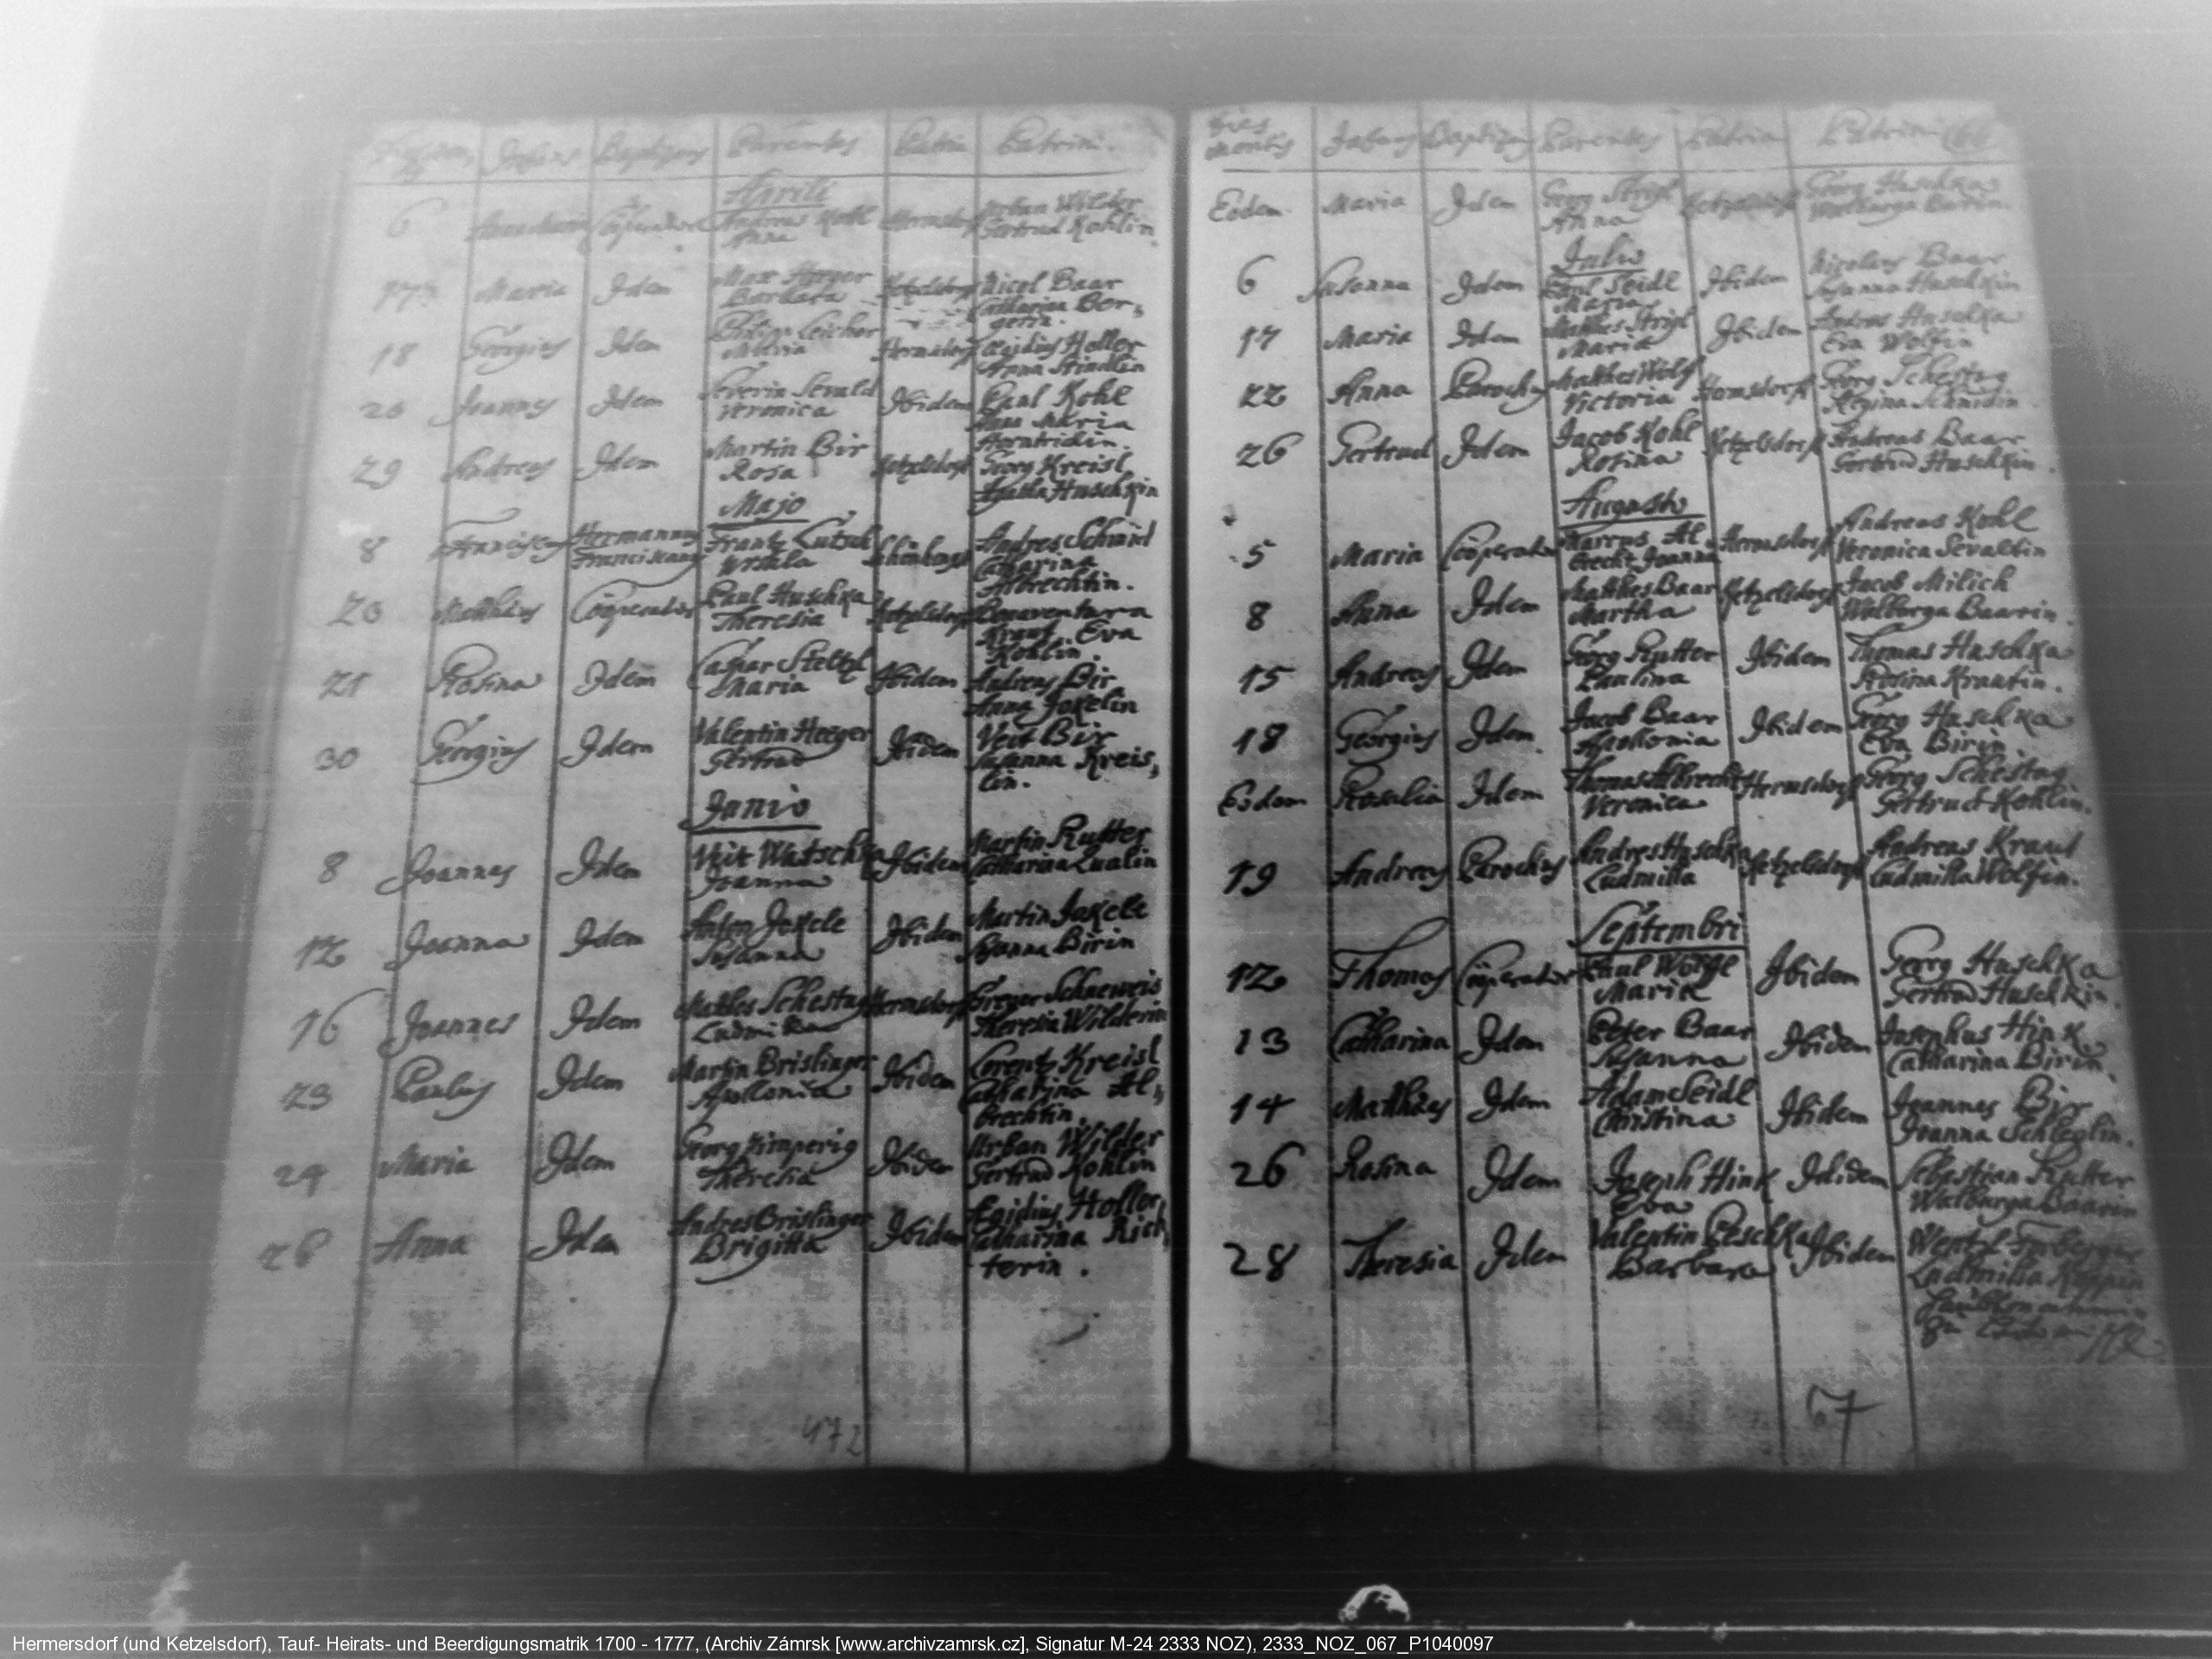 Infans Baptizans Parentes Patria Patrini.
Aprili
6 Cooperator Andreas Kohl Hermsdorf Urban Wilder
Anna Gertrud Kohlin
17 Maria Idem Max Heeger Ketzelsdorf Nicol Baar
Barbara Catharina Ber,
gerin.
18 Georgius Idem Leicher Hermsdorf Egidius Holler
Maria Anna Steindlin
26 Joannes Idem Severin Sevald Ibidem Paul Kohl
Veronica Anna Maria
29 Andreas Idem Martin Bir Ketzelsdorf Georg Kreisl
Rosa Huschkin
Majo
8 Franciscus Hermannus Frantz Andres Schmid
Franciscanus Ursula Catharina
Albrechtin.
20 Matthias Cooperator Paul Huschka Ketzelsdorf Bonaventura
Theresia Kraut, Eva
Kohlin.
21 Rosina Idem Caspar Steltzl Ibidem Andreas Bir
Maria Anna Jokelin
30 Georgius Idem Valentin Heeger Ibidem Veit Bir
Gertrud Susanna Kreis,
lin.
Junio
8 Joannes Idem Veit Watschka Ibidem Martin Rutter
Joanna Catharina
12 Joanna Idem Anton Jokele Ibidem Martin Jokele
Susanna Joanna Birin
16 Joannes Idem Matthes Schestag Hermsdorf Gregor Schneeweis
Ludmilla Theresia Wilderin
23 Paulus Idem Martin Brislinger Ibidem Lorentz Kreisl
Apollonia Catharina Al,
brechtin.
24 Maria Idem Georg Zimperig Ibidem Urban Wilder
Theresia Gertrud Kohlin
28 Anna Idem Andres Brislinger Ibidem Egidius Holler,
Brigitta Catharina Rich,
terin.
472
Dies
Mensis Infans Baptizans Parentes Patria Patrini
Eodem Maria Idem Georg Strigl Ketzelsdorf Georg Huschka
Anna Walburga Baarin.
Julio
6 Susanna Idem Paul Seidl Ibidem Nicolaus Baar
Maria Susanna Huschkin
17 Maria Idem Matthes Strigl Ibidem Andreas Huschka
Maria Eva Wolfin
22 Anna Parochus Matthes Wolf Hermsdorf Georg Schestag
Victoria Regina Schmidin
26 Gertrud Idem Jacob Kohl Ketzelsdorf Andreas Baar
Rosina Gertrud Huschkin.
Augusto
5 Maria Cooperator Marcus Al, Hermsdorf Andreas Kohl
brecht, Joanna Veronica Sevaldin
8 Anna Idem Matthes Baar Ketzelsdorf Jacob Milich
Martha Walburga Baarin.
15 Andreas Idem Georg Rutter Ibidem Thomas Huschka
Paulina Rosina Krautin.
18 Georgius Idem Jacob Baar Ibidem Georg Huschka
Apollonia Eva Birin.
Eodem Rosalia Idem Thomas Albrecht Hermsdorf Georg Schestag
Veronica Gertrud Kohlin.
19 Andreas Parochus Andres Huschka Ketzelsdorf Andreas Kraut
Ludmilla Ludmilla Wolfin.
Septembri
12 Thomas Cooperator Paul Ibidem Georg Huschka
Maria Gertrud Huschkin.
13 Catharina Idem Peter Baar Ibidem Josephus Hink
Susanna Catharina Birin.
14 Matthias Idem Adam Seidl Ibidem Joannes Birr
Christina Joanna Schleglin.
26 Rosina Idem Joseph Hink Ibidem Sebastian Rutter
Eva Walburga Baarin
28 Theresia Idem Valentin Peschka Ibidem Wentzl
Barbara Ludmilla
67
Hermersdorf (und Ketzelsdorf), Tauf- Heirats- und Beerdigungsmatrik 1700 - 1777, (Archiv Zámrsk [www.archivzamrsk.cz], Signatur M-24 2333 NOZ), 2333_NOZ_067_P1040097